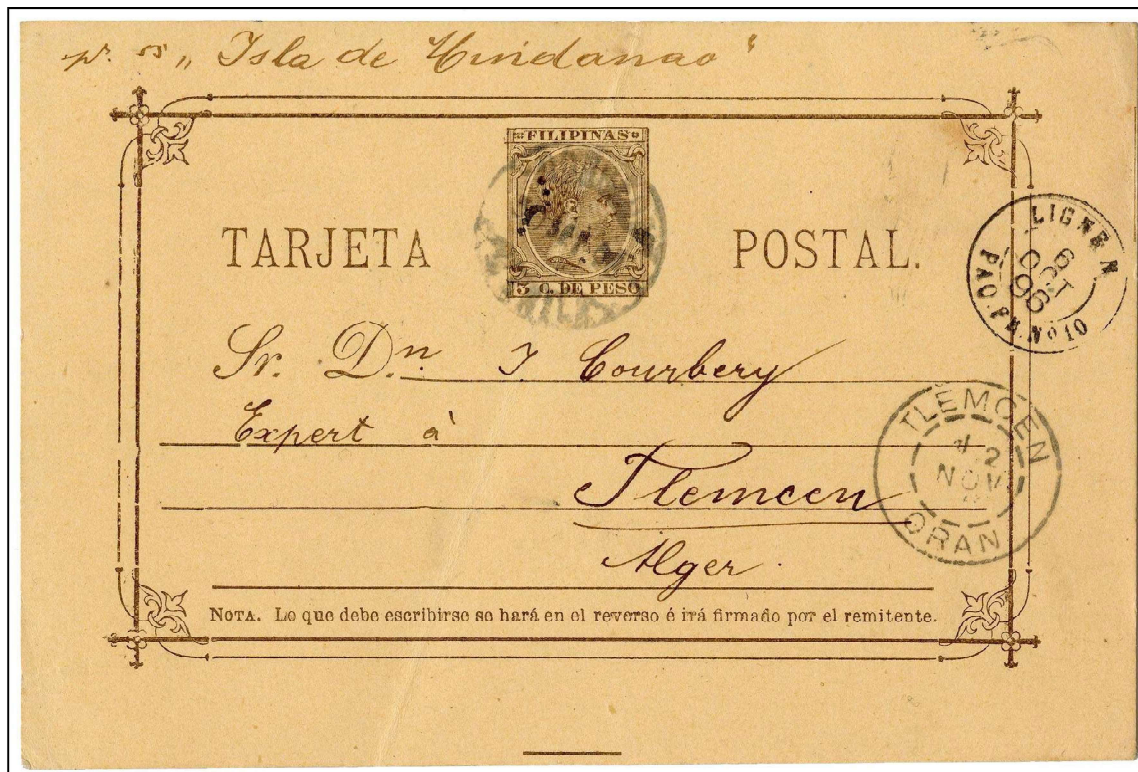 pr. ss „Isla de Mindanao"
FILIPINAS
3 C. DE PESO
TARJETA POSTAL.
LIGNE N
6
OCT
96
PAQ. FR. Nº 10
Sr. Dn. J Courbery
Expert à
Tlemcen
Alger
TLEMCEN
2
NOV
ORAN
NOTA. Lo que debe escribirse se hará en el reverso é irá firmado por el remitente.